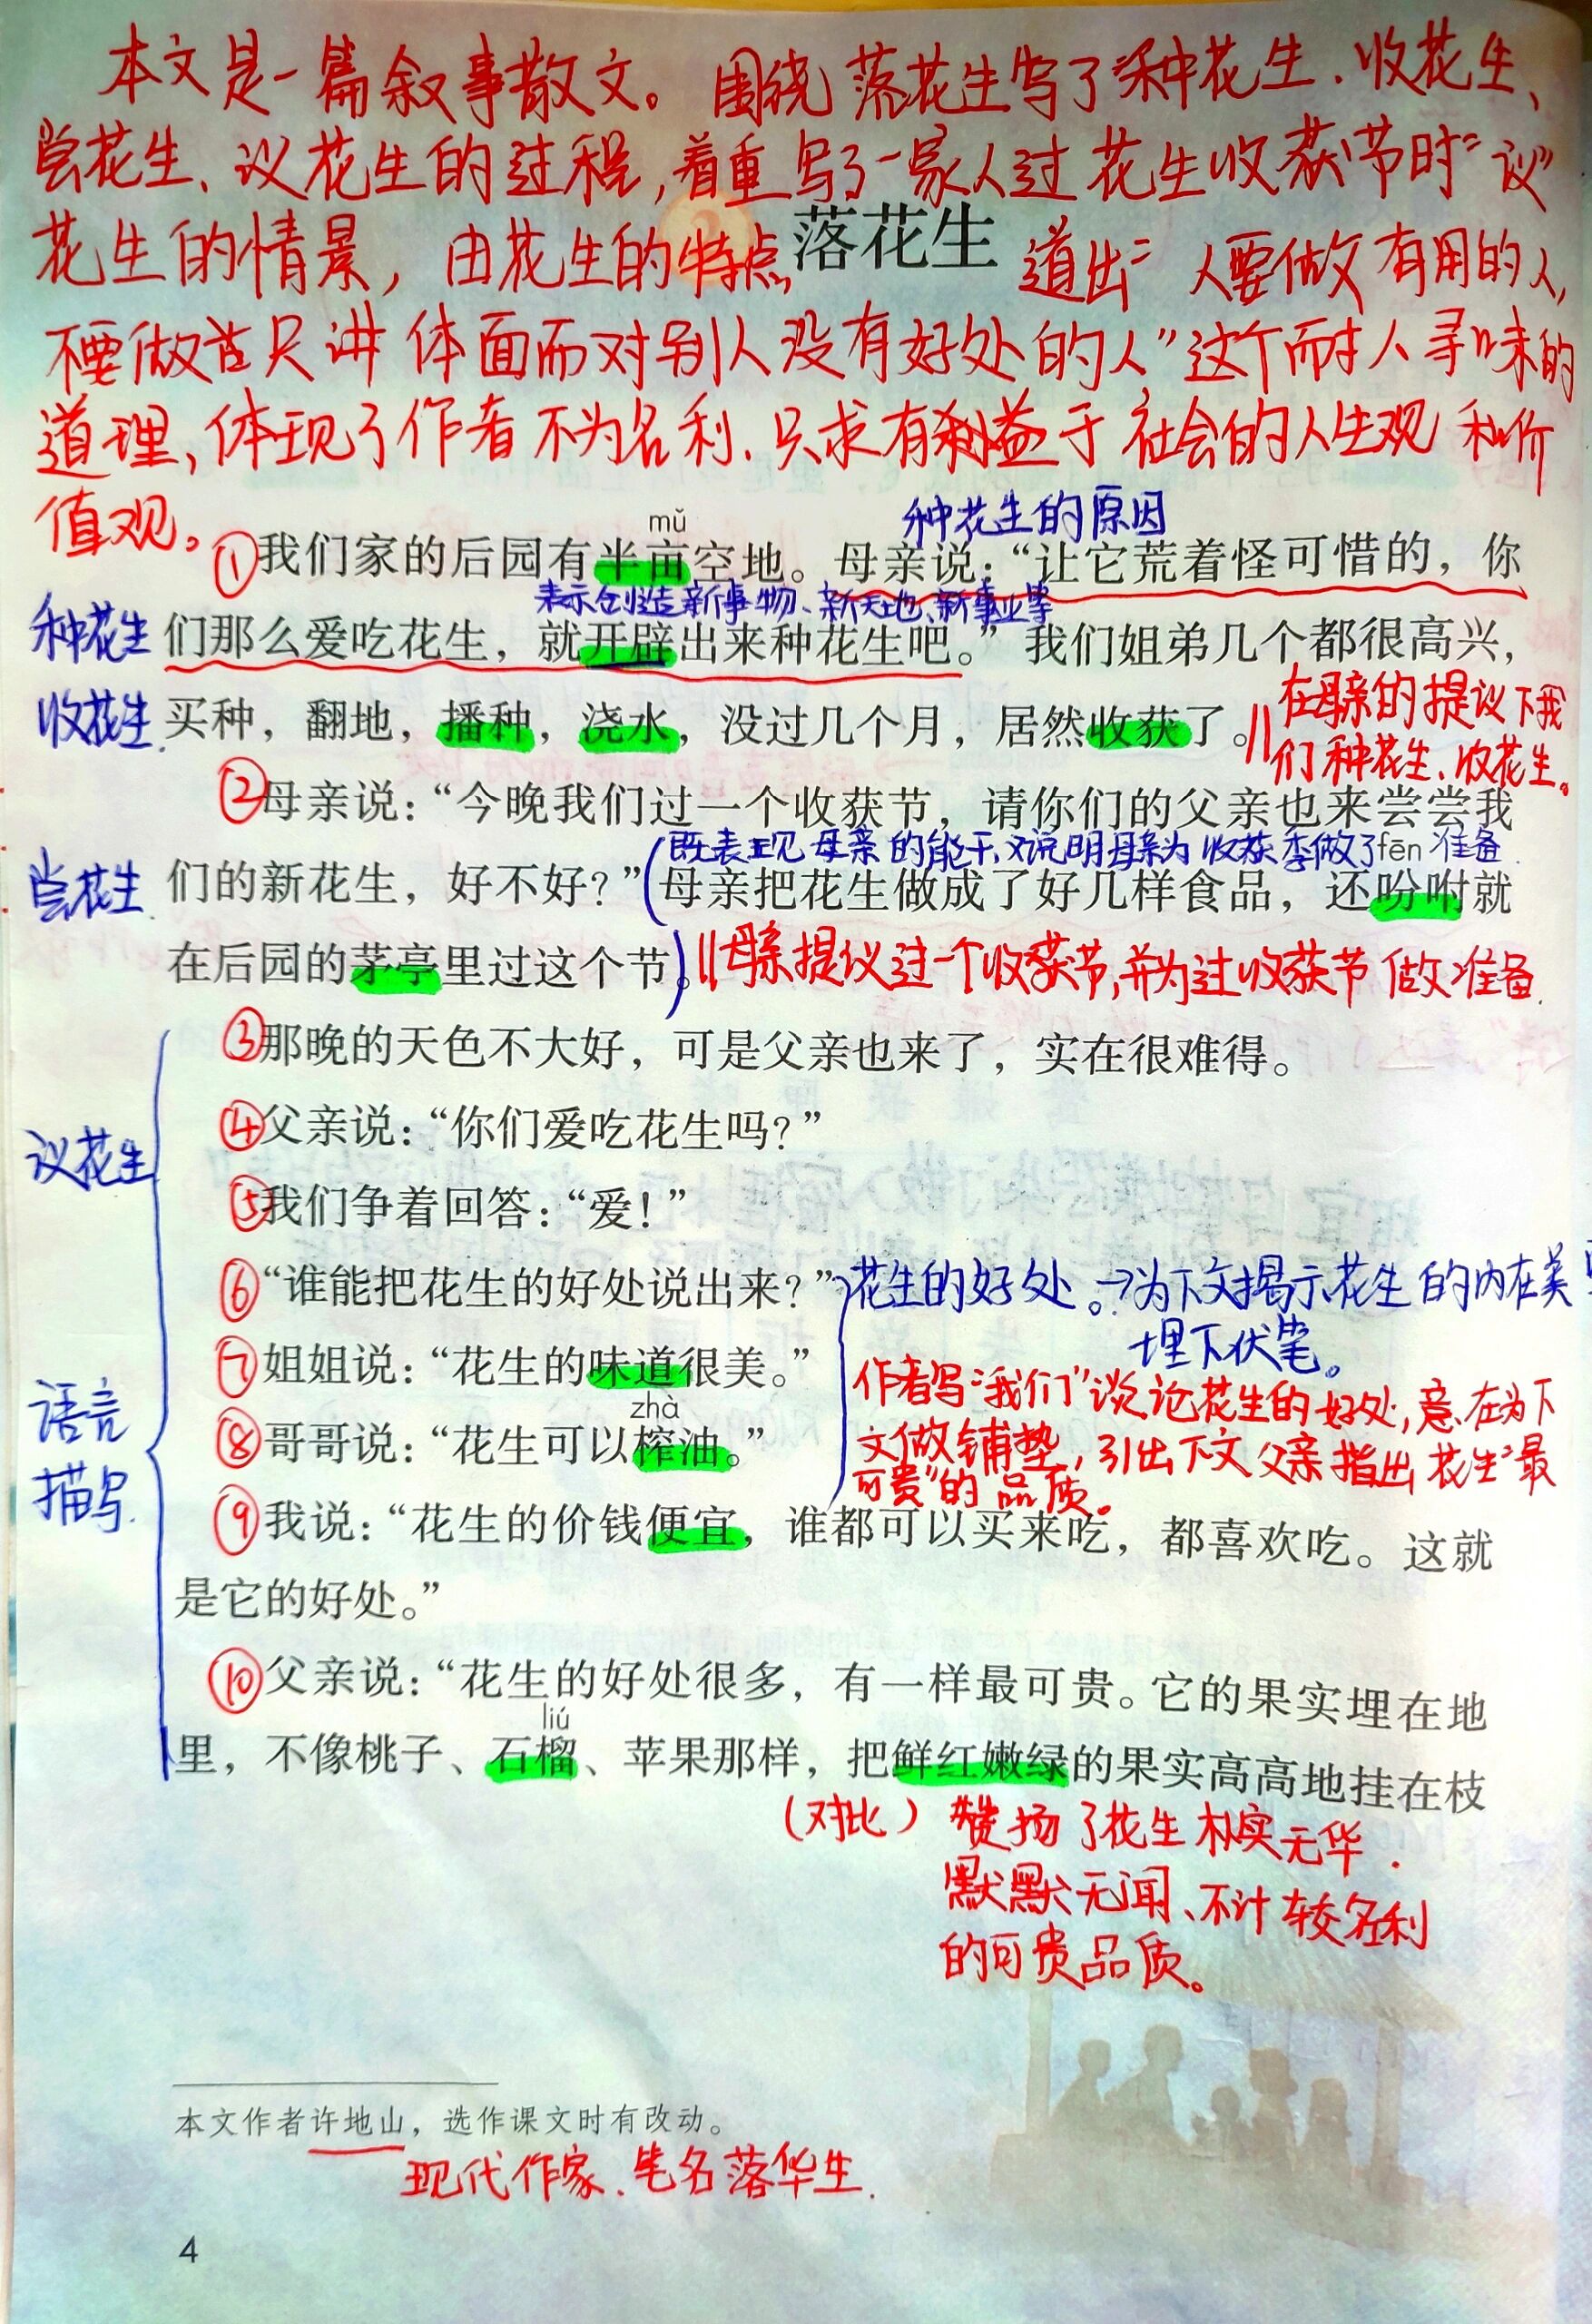 本文是一篇叙事散文。围绕落花生写了种花生、收花生、
尝花生、议花生的过程,着重写了一家人过花生收获节时"议"
花生的情景,由花生的特点 道出"人要做有用的人,
2 落花生
不要做只讲体面而对别人没有好处的人"这个耐人寻味的
道理,体现了作者不为名利、只求有益于社会的人生观和价
值观。
种花生的原因
mǔ
①我们家的后园有半亩空地。母亲说:“让它荒着怪可惜的,你
表示创造新事物、新天地、新事业等
种花生 们那么爱吃花生,就开辟出来种花生吧。”我们姐弟几个都很高兴,
收花生 买种,翻地,播种,浇水,没过几个月,居然收获了。
在母亲的提议下我
们种花生、收花生。
②母亲说:“今晚我们过一个收获节,请你们的父亲也来尝尝我
既表现母亲的能干,又说明母亲为收获季做了准备
fēn
尝花生 们的新花生,好不好?”母亲把花生做成了好几样食品,还吩咐就
在后园的茅亭里过这个节。 母亲提议过一个收获节,并为过收获节做准备
③那晚的天色不大好,可是父亲也来了,实在很难得。
④父亲说:“你们爱吃花生吗?”
议花生
⑤我们争着回答:“爱!”
⑥“谁能把花生的好处说出来?” 花生的好处。→为下文揭示花生的内在美
埋下伏笔。
⑦姐姐说:“花生的味道很美。”
作者写"我们"谈论花生的好处,意在为下
zhà
语言
⑧哥哥说:“花生可以榨油。”
文做铺垫,引出下文父亲指出花生"最
可贵"的品质。
描写
⑨我说:“花生的价钱便宜,谁都可以买来吃,都喜欢吃。这就
是它的好处。”
⑩父亲说:“花生的好处很多,有一样最可贵。它的果实埋在地
liú
里,不像桃子、石榴、苹果那样,把鲜红嫩绿的果实高高地挂在枝
(对比) 赞扬了花生朴实无华、
默默无闻、不计较名利
的可贵品质。
本文作者许地山,选作课文时有改动。
现代作家、笔名落华生.
4